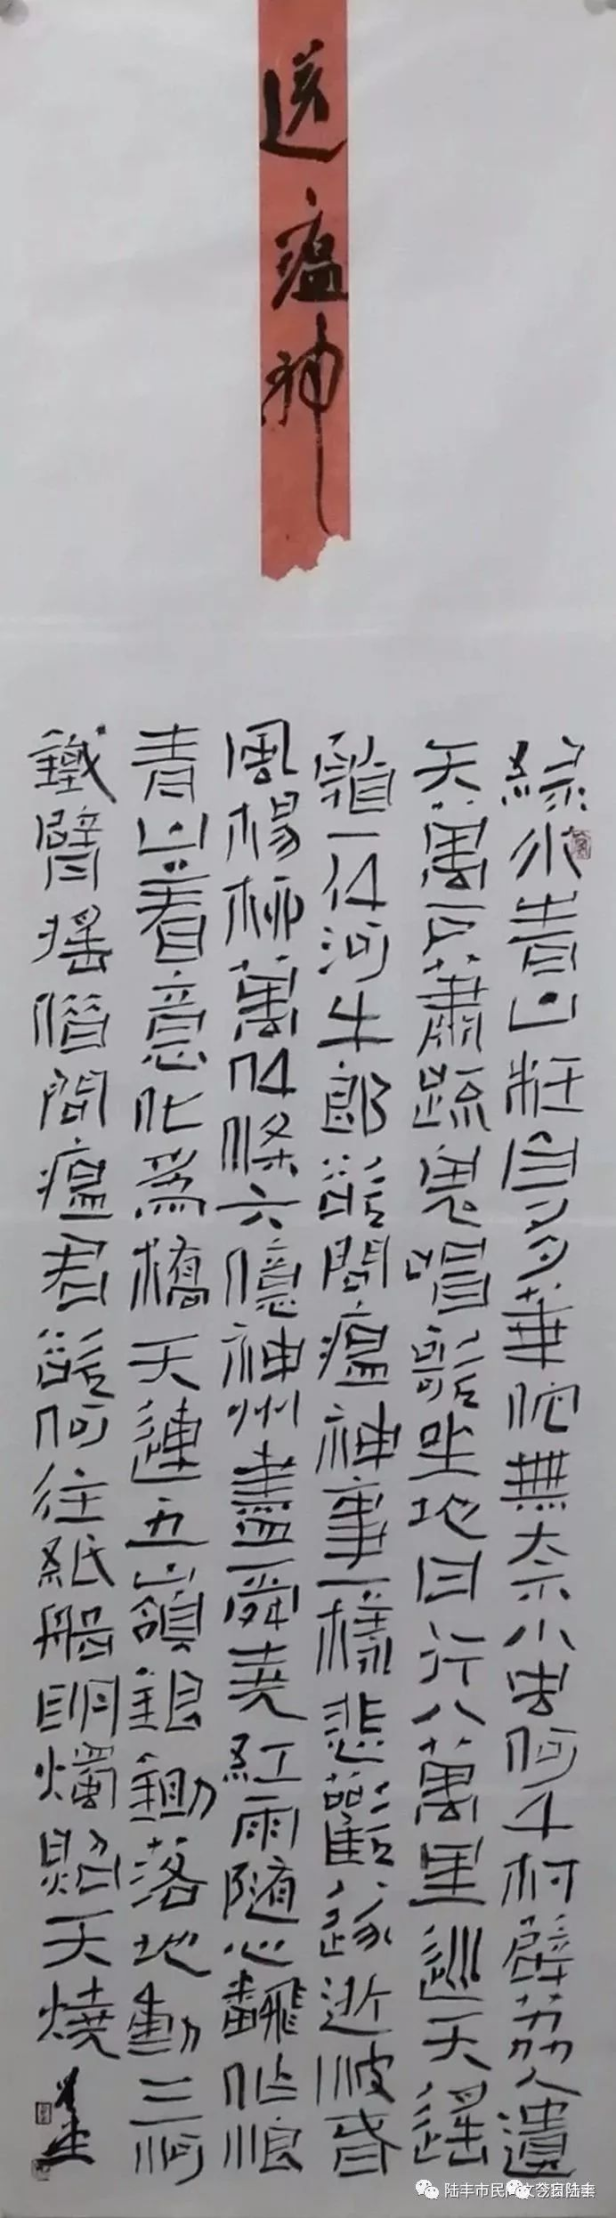 送瘟神
綠水青山枉自多華陀無奈小虫何千村薜荔人遺
矢萬戶蕭疏鬼唱歌坐地日行八萬里巡天遥
一千河牛郎欲問瘟神事一樣悲歡逐逝波春
風楊柳萬千條六億神州盡舜堯紅雨隨心翻作浪
青山着意化為橋天連五嶺銀鋤落地動三河
鐵臂摇借問瘟君欲何往紙船明燭照天燒
陆丰市民